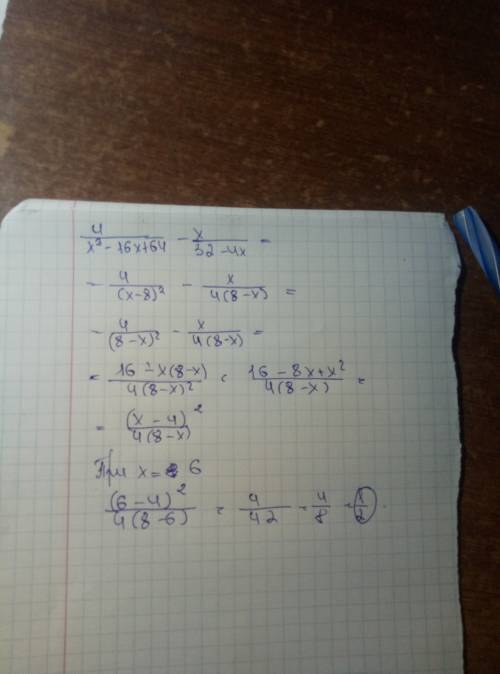 4/(x² - 16x + 64) - x/(32 - 4x) =
- 4/(x-8)² - x/(4(8-x)) =
- 4/(8-x)² - x/(4(8-x)) =
= (16 - x(8-x))/(4(8-x)²) = (16 - 8x + x²)/(4(8-x)) =
= (x - 4)²/(4(8-x))
При x = 6
(6-4)²/(4(8-6)) = 4/(4 2) = 4/8 = 1/2.